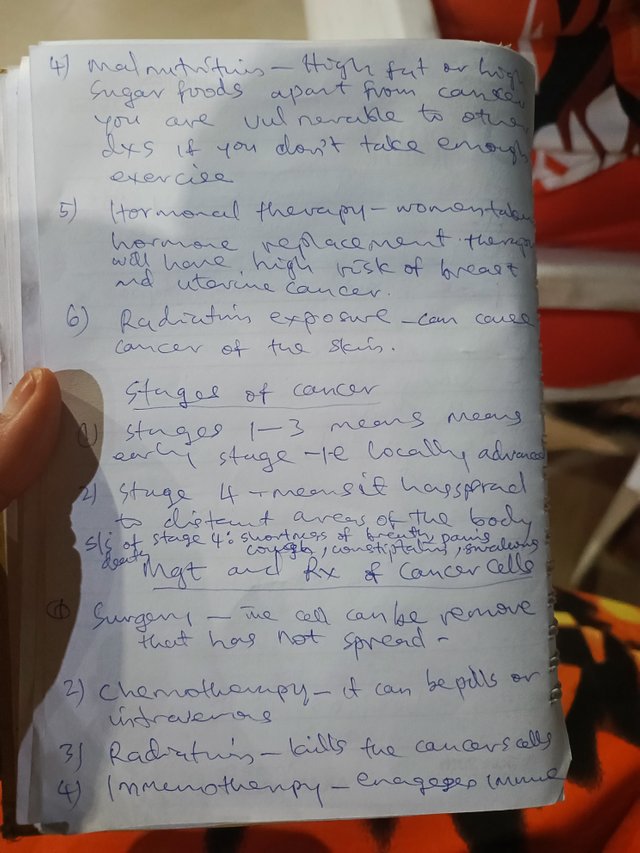 4) Malnutritins - High fat or high
Sugar foods apart from cancer
you are vulnerable to other
dxs if you don't take enough
exercise
5) Hormonal therapy - women taken
hormone replacement therapy
will have high risk of breast
nd uterine cancer.
6) Radiatins exposure - can cause
cancer of the skin.
Stages of cancer
1) Stages 1-3 means means
early stage -ie locally advanced
2) Stage 4 - means it has spread
to distant areas of the body
S/s of stage 4: shortness of breath, pains
cough, constiptatins,
Mgt and Rx of Cancer cells
1) Surgery - The cell can be remove
that has not spread -
2) Chemotherapy - it can be pills or
intravenous
3) Radiatins - kills the cancers cells
4) Immemotherapy - enagages immue